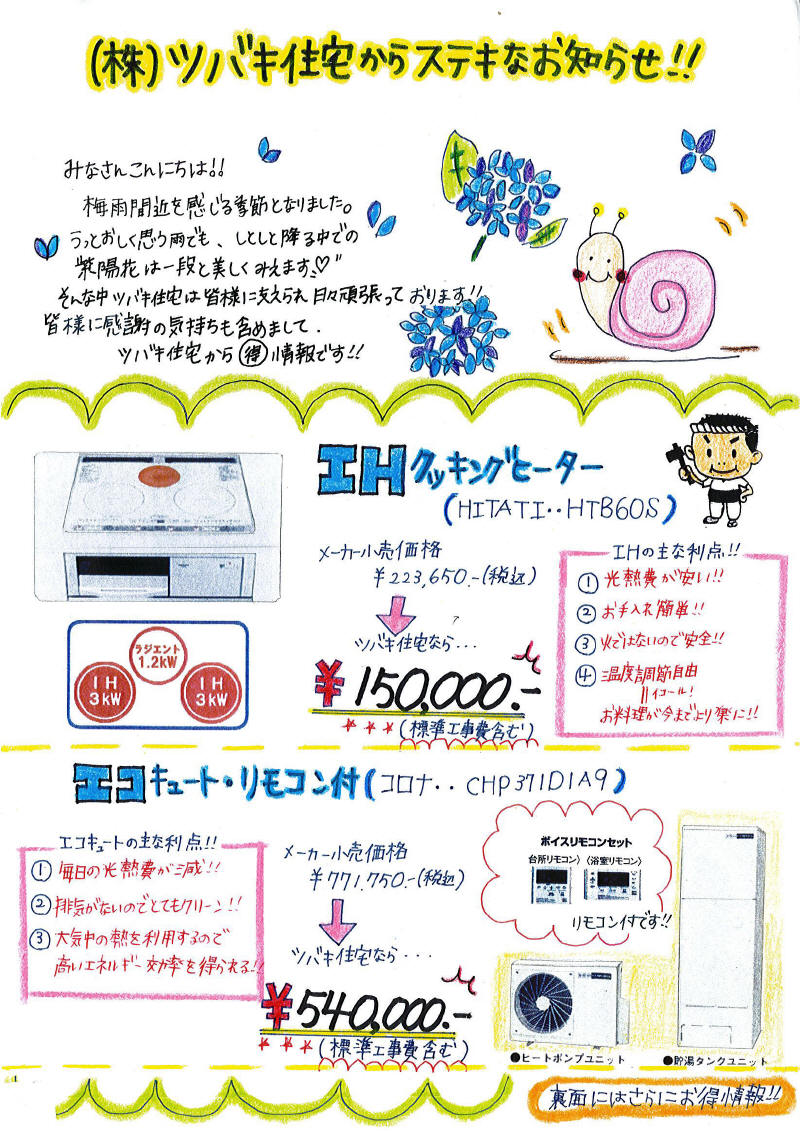 (株)ツバキ住宅からステキなお知らせ!!
みなさんこんにちは!!
梅雨間近を感じる季節となりました。
うっとおしく思う雨でも、しとしと降る中での
"紫陽花は一段と美しくみえます♡"
そんな中ツバキ住宅は皆様に支えられ日々頑張っております!!
皆様に感謝の気持ちも含めまして.
ツバキ住宅から㊝情報です!!
IHクッキングヒーター
(HITATI‥HTB60S)
メーカー小売価格
¥223,650.-(税込)
ツバキ住宅なら...
¥150,000.-
***(標準工事費含む)
ラジエント
1.2kW
IH
3kW
IH
3kW
IHの主な利点!!
① 光熱費が安い!!
② お手入れ簡単!!
③ 火ではないので安全!!
④ 温度調節自由
||イコール!
お料理が今までより楽に!!
エコキュート・リモコン付(コロナ‥CHP371D1A9)
エコキュートの主な利点!!
① 毎日の光熱費が減!!
② 排気がないのでとてもクリーン!!
③ 大気中の熱を利用するので
高いエネルギー効率を得られる!!
メーカー小売価格
¥771,750.-(税込)
ツバキ住宅なら...
¥540,000.-
***(標準工事費含む)
ボイスリモコンセット
台所リモコン〉〈浴室リモコン〉
リモコン付です!!
●ヒートポンプユニット
●貯湯タンクユニット
裏面にはさらにお得情報!!